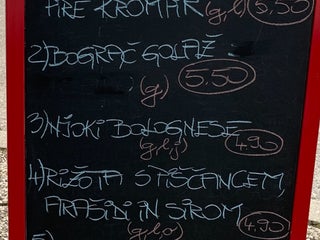 PIRE KROMPIR (g,l) 5.50
2) BOGRAČ GOLAŽ
(g) 5.50
3) NJOKI BOLOGNESE
(g,l,j) 4.90
4) RIŽOTA S PIŠČANCEM,
ARAŠIDI IN SIROM
(g,l,o) 4.90
5)